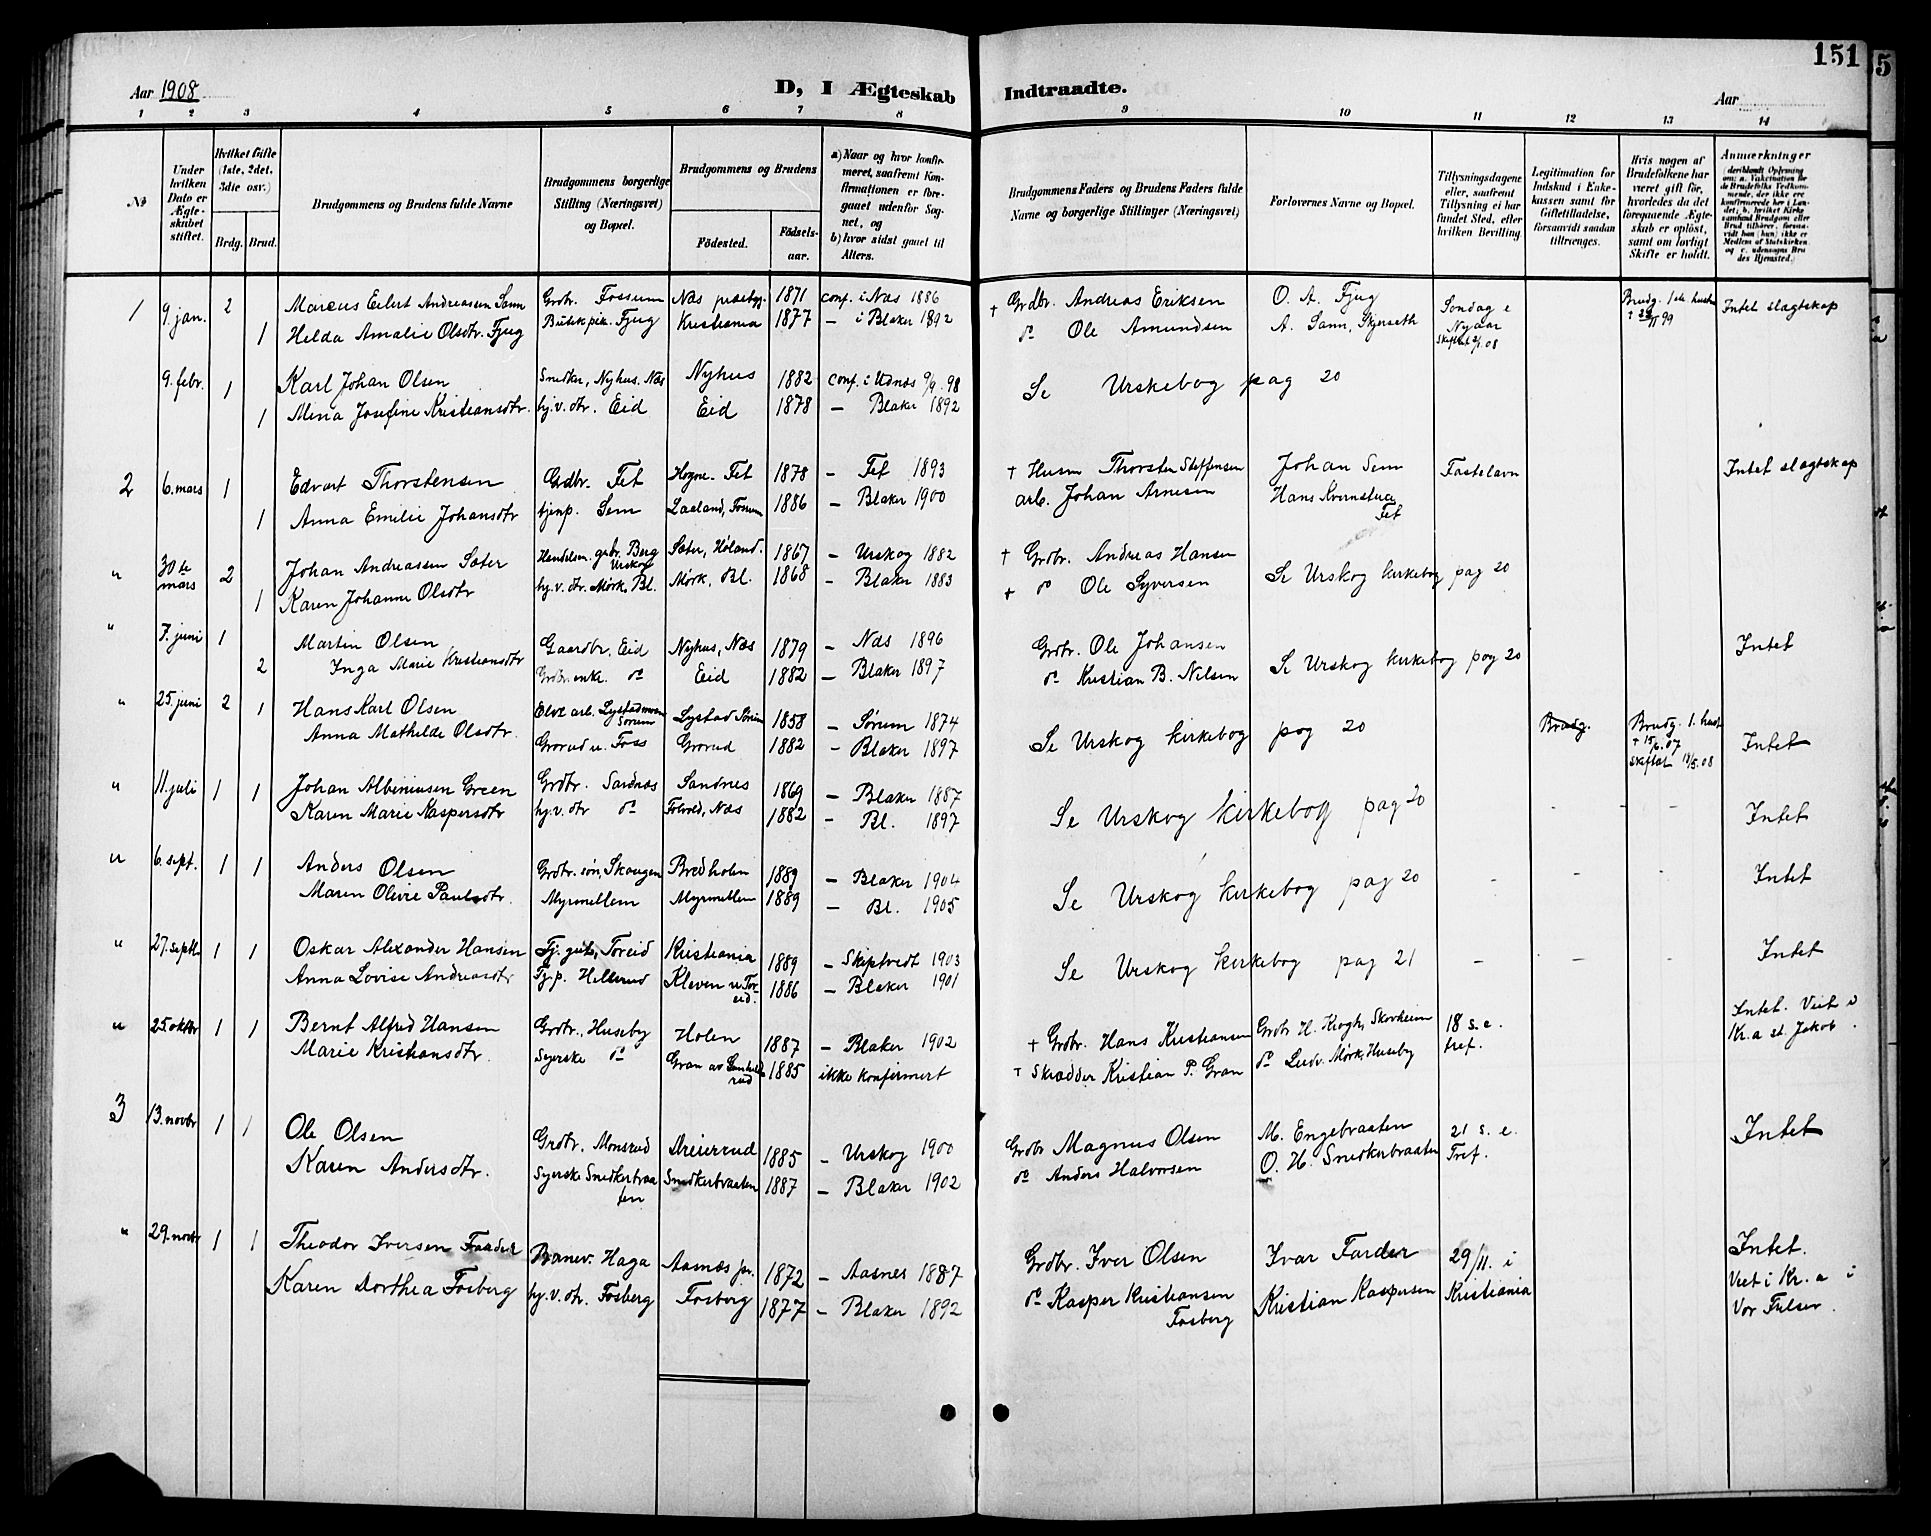 151
5
Aar 1908
D, I Ægteskab
Indtraadte.
Aar
1 2 3 4 5 6 7 8 9 10 11 12 13 14
No
Under hvilken Dato er Ægteskabet stiftet.
Hvilket Gifte (1ste, 2det, 3die osv.)
Brdg. Brud.
Brudgommens og Brudens fulde Navne
Brudgommens borgerlige Stilling (Næringsvei) og Bopæl.
Brudgommens og Brudens
Fødested.
Fødsels-aar.
a) Naar og hvor konfirmeret, saafremt Konfirmationen er foregaaet udenfor Sognet, og
b) hvor sidst gaaet til Alters.
Brudgommens Faders og Brudens Faders fulde Navne og borgerlige Stillinger (Næringsvei)
Forlovernes Navne og Bopæl.
Tillysningsdagene eller, saafremt Tillysning ei har fundet Sted, efter hvilken Bevilling.
Legitimation for Indskud i Enkekassen samt for Giftetilladelse, forsaavidt saadan tiltrænges.
Hvis nogen af Brudefolkene har været gift før, hvorledes da det foregaaende Ægteskab er opløst, samt om lovligt Skifte er holdt.
Anmærkninger
1 9 jan. 2 Marcus Eilert Andreassen Sann Grdbr. Fossum Næs præstegj. 1871 conf. i Næs 1886 † Grdbr. Andreas Eriksen O. A. Fjug Søndag e Brudg. 1ste hustr Intet slagtskap
1 Helda Amalie Olsdtr. Fjug Butikpik. Fjug Kristiania 1877 – i Blaker 1892 do Ole Amundsen A. Sann, Skjerseth Nyaar
9. febr. 1 Karl Johan Olsen Snedker, Nyhus. Næs Nyhus 1882 conf. i Udnæs 9/9. 98 Se Urskebog pag 20
1 Mina Josefine Kristiansdtr. hj.v. dtr. Eid Eid 1878 – Blaker 1892
2 6. mars 1 Edvart Thorstensen Grdbr. Fet Hogne. Fet 1878 – Fet 1893 † Husm Thorsten Steffensen Johan Sem Fastelavn Intet slagtskap
1 Anna Emilie Johansdtr tjenp. Sem Laaland, Fossum 1886 – Blaker 1900 arb. Johan Arnesen Hans Kvernstua Fet
" 30te mars 2 Johan Andreassen Sæter Handelsm. grbr. Berg Urskog Sæter, Høland. 1867 – Urskog 1882 † Grdbr. Andreas Hansen Se Urskog kirkebog pag 20
1 Karen Johanne Olsdtr hj.v. dtr. Mørk, Bl. Mørk, Bl. 1868 – Blaker 1883 † do Ole Syversen
" 7. juni 1 Martin Olsen Gaardbr. Eid Nyhus, Næs 1879 – Næs 1896 Grdbr. Ole Johansen Se Urskog kirkebog pag 20 Intet
2 Inga Marie Kristiansdtr Grdbr. enke. do Eid 1882 – Blaker 1897 do Kristian B. Nilsen
" 25. juni 2 1 Hans Karl Olsen Elve arb. Lystadmoen Sørum Lystad Sørum 1858 – Sørum 1874 Se Urskog kirkebog pag 20 Brudg. Brudg. 1. hustr Intet
Anna Mathilde Olsdtr. Grorud u. Foss Grorud 1882 – Blaker 1897 † 15/6. 07
" 11. juli 1 1 Johan Albiniusen Green Grdbr. Sandnæs Sandnes 1869 – Blaker 1887 Se Urskog kirkebog pag 20 - - - Intet
Karen Marie Kaspersdtr hj.v. dtr do Folvold, Næs 1882 – Bl. 1897
" 6. sept. 1 1 Anders Olsen Grdbr. søn, Skougen Bredholen 1889 – Blaker 1904 Se Urskog kirkebog pag 20 - - - Intet
Maren Olivie Paulsdtr. Myrmellem Myrmellem 1889 – Bl. 1905
" 27. septb 1 1 Oskar Alexander Hansen Tj. gut, Toreid Kristiania 1889 – Skiptvedt 1903 Se Urskog kirkebog pag 21 - - - Intet
Anna Lovise Andreasdtr Tj.p. Hellerud Kleven u Toreid. 1886 – Blaker 1901
" 25. oktbr 1 1 Bernt Alfred Hansen Grdbr., Huseby Holen 1887 – Blaker 1902 † Grdbr. Hans Kristiansen Grdbr H. Krogh, Skovheim 18 s. e. tref. Intet. Viet i Kr.a st. Jakob.
Marie Kristiansdtr. Syerske do 1885 ikke konfirmert † Skrædder Kristian P. Gran do Ludv. Mørk, Huseby
3 13. novbr 1 1 Ole Olsen Grdbr. Monsrud Dreierrud 1885 – Urskog 1900 Grdbr Magnus Olsen M. Engebraaten 21 s. e. Tref. Intet
Karen Andersdtr. Syerske Snedkerbraaten Snedkerbraaten 1887 – Blaker 1902 do Anders Halvorsen O. H. Snedkerbraaten
" 29. novbr 1 1 Theodor Iversen Faarder Banev. Haga Aasnæs pr. 1872 – Aasnes 1887 Grdbr. Iver Olsen Ivar Farder 29/11. i Intet.
Karen Dorthea Fosberg hj.v. dtr. Fosberg Fosberg 1877 – Blaker 1892 do Kasper Kristiansen Fosberg Kristian Kaspersen Kristiania Viet i Kr. a i Vor Frelser.